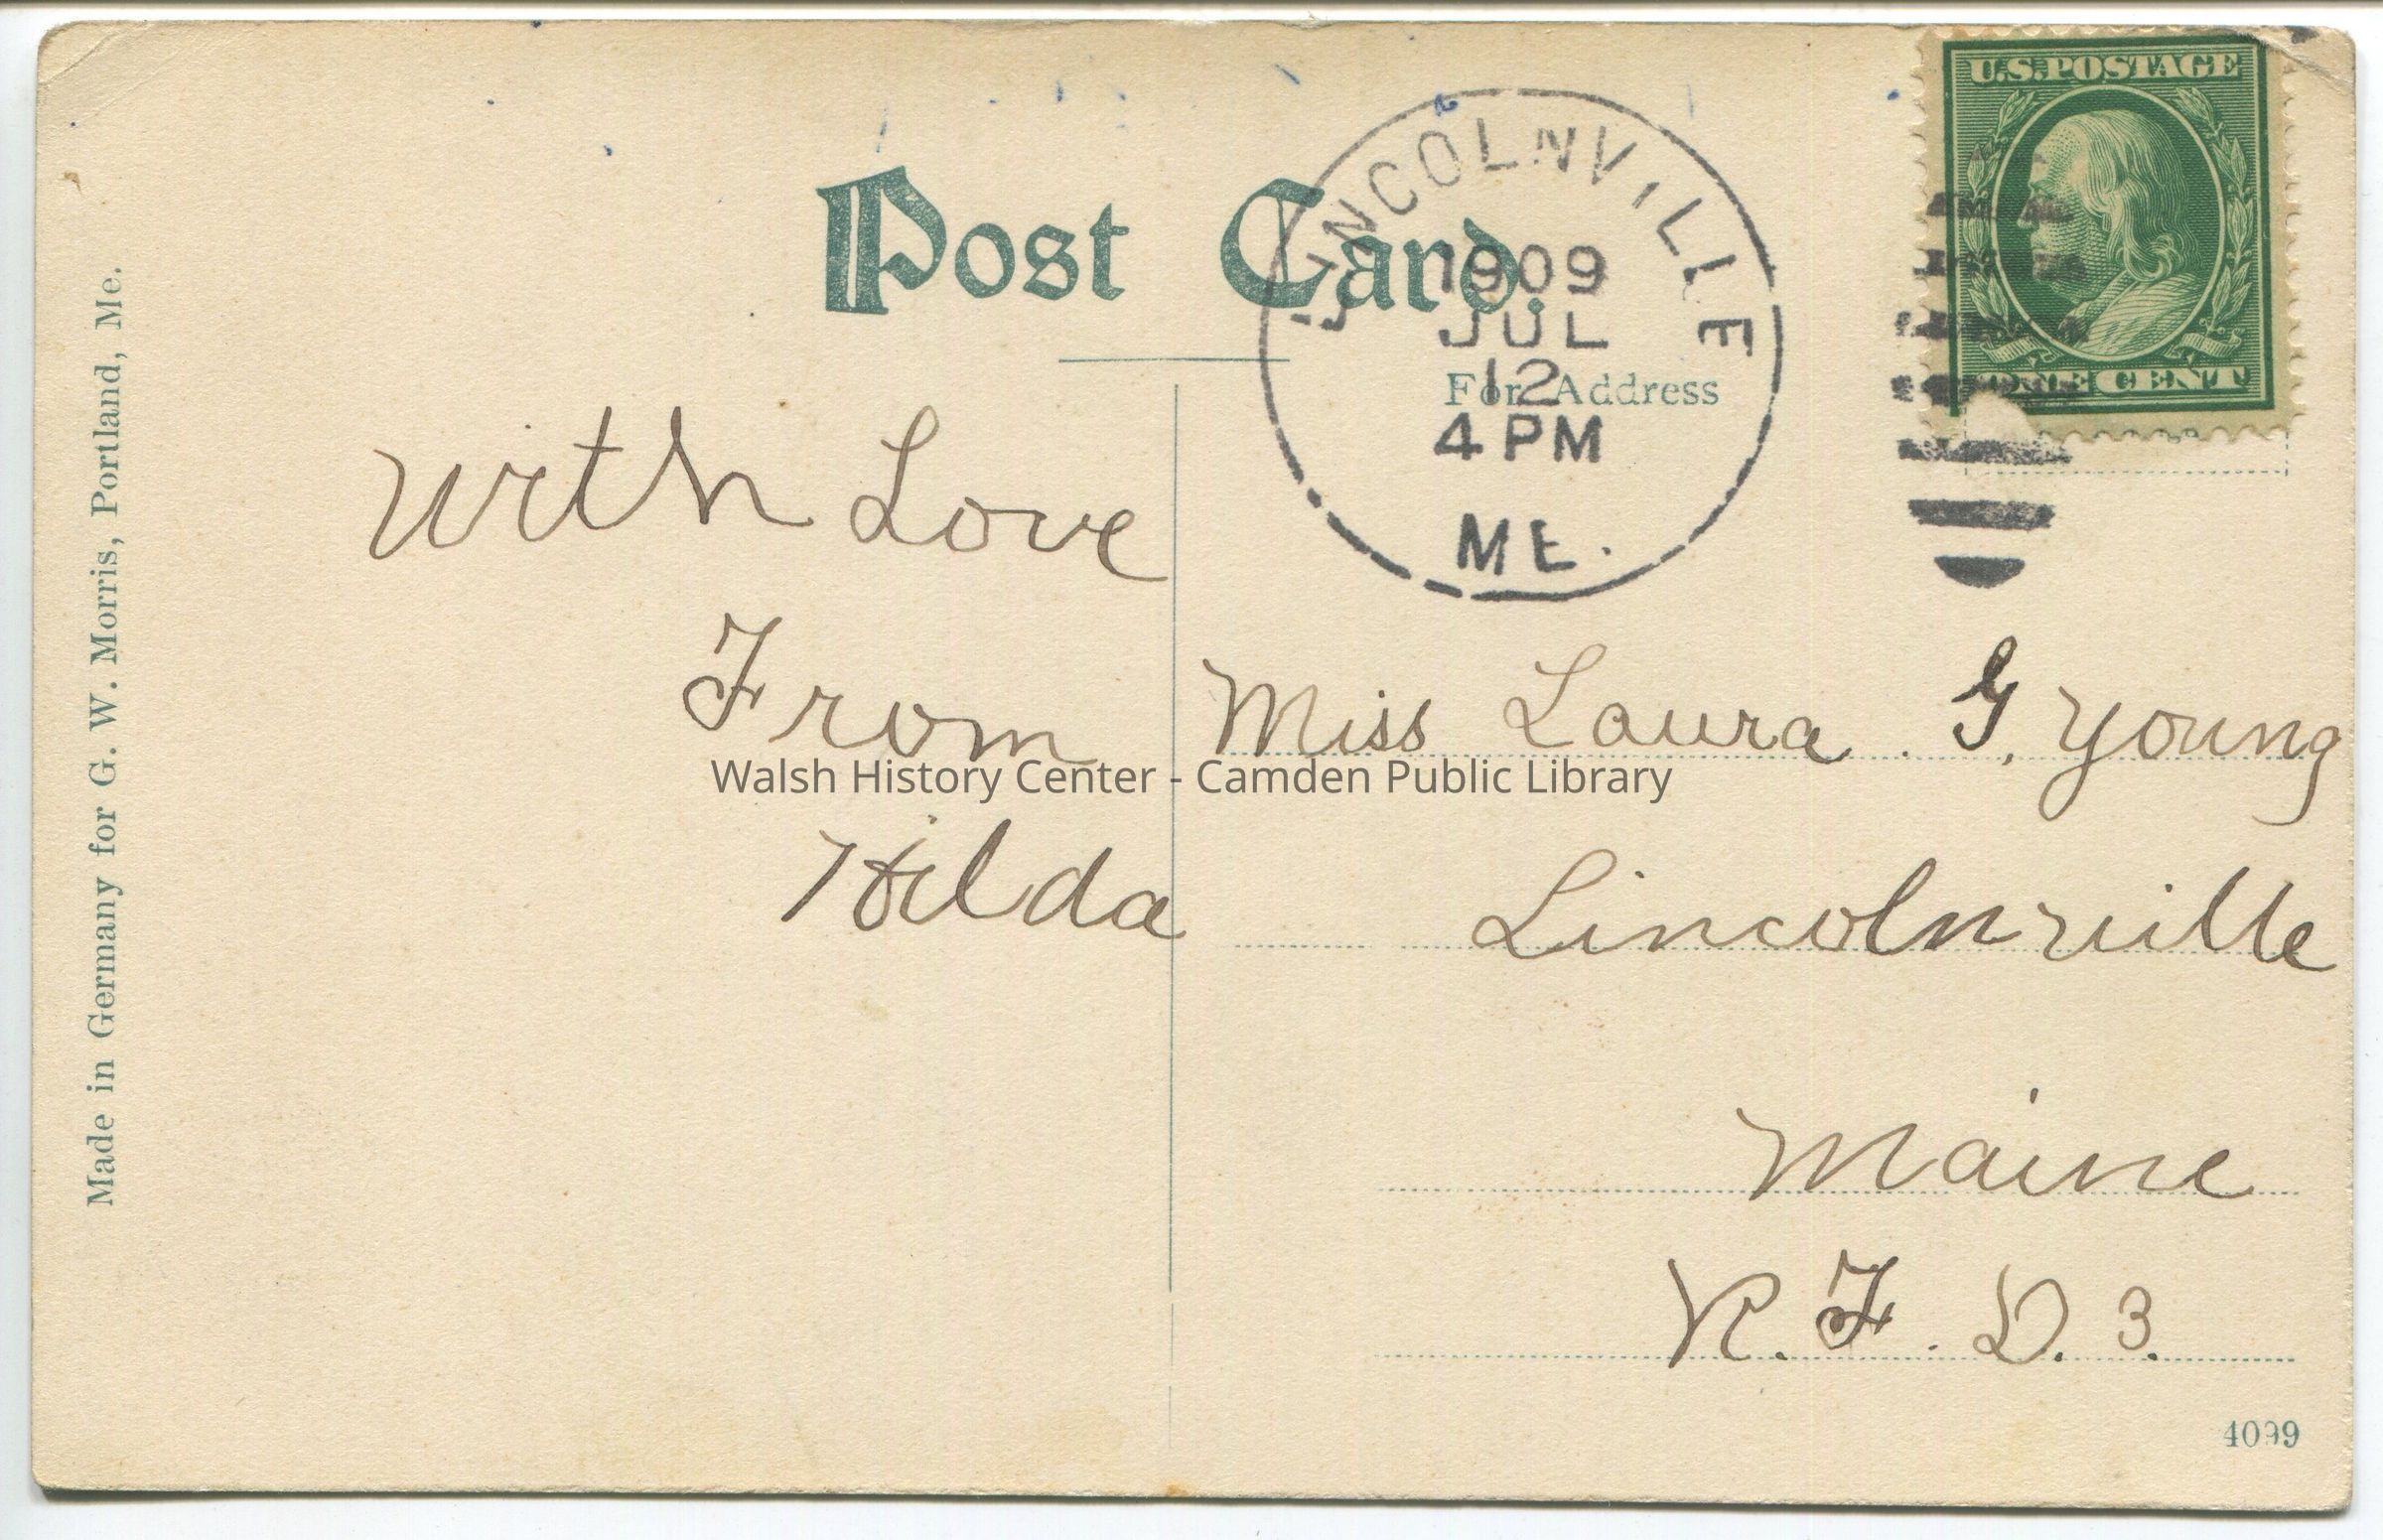 U.S. POSTAGE
ONE CENT
Post Card.
For Address
LINCOLNVILLE
1909
JUL
12
4 PM
ME.
With Love
From
Hilda
Miss Laura . G. Young
Lincolnville
Maine
R. F. D. 3.
4099
Made in Germany for G. W. Morris, Portland, Me.
Walsh History Center - Camden Public Library